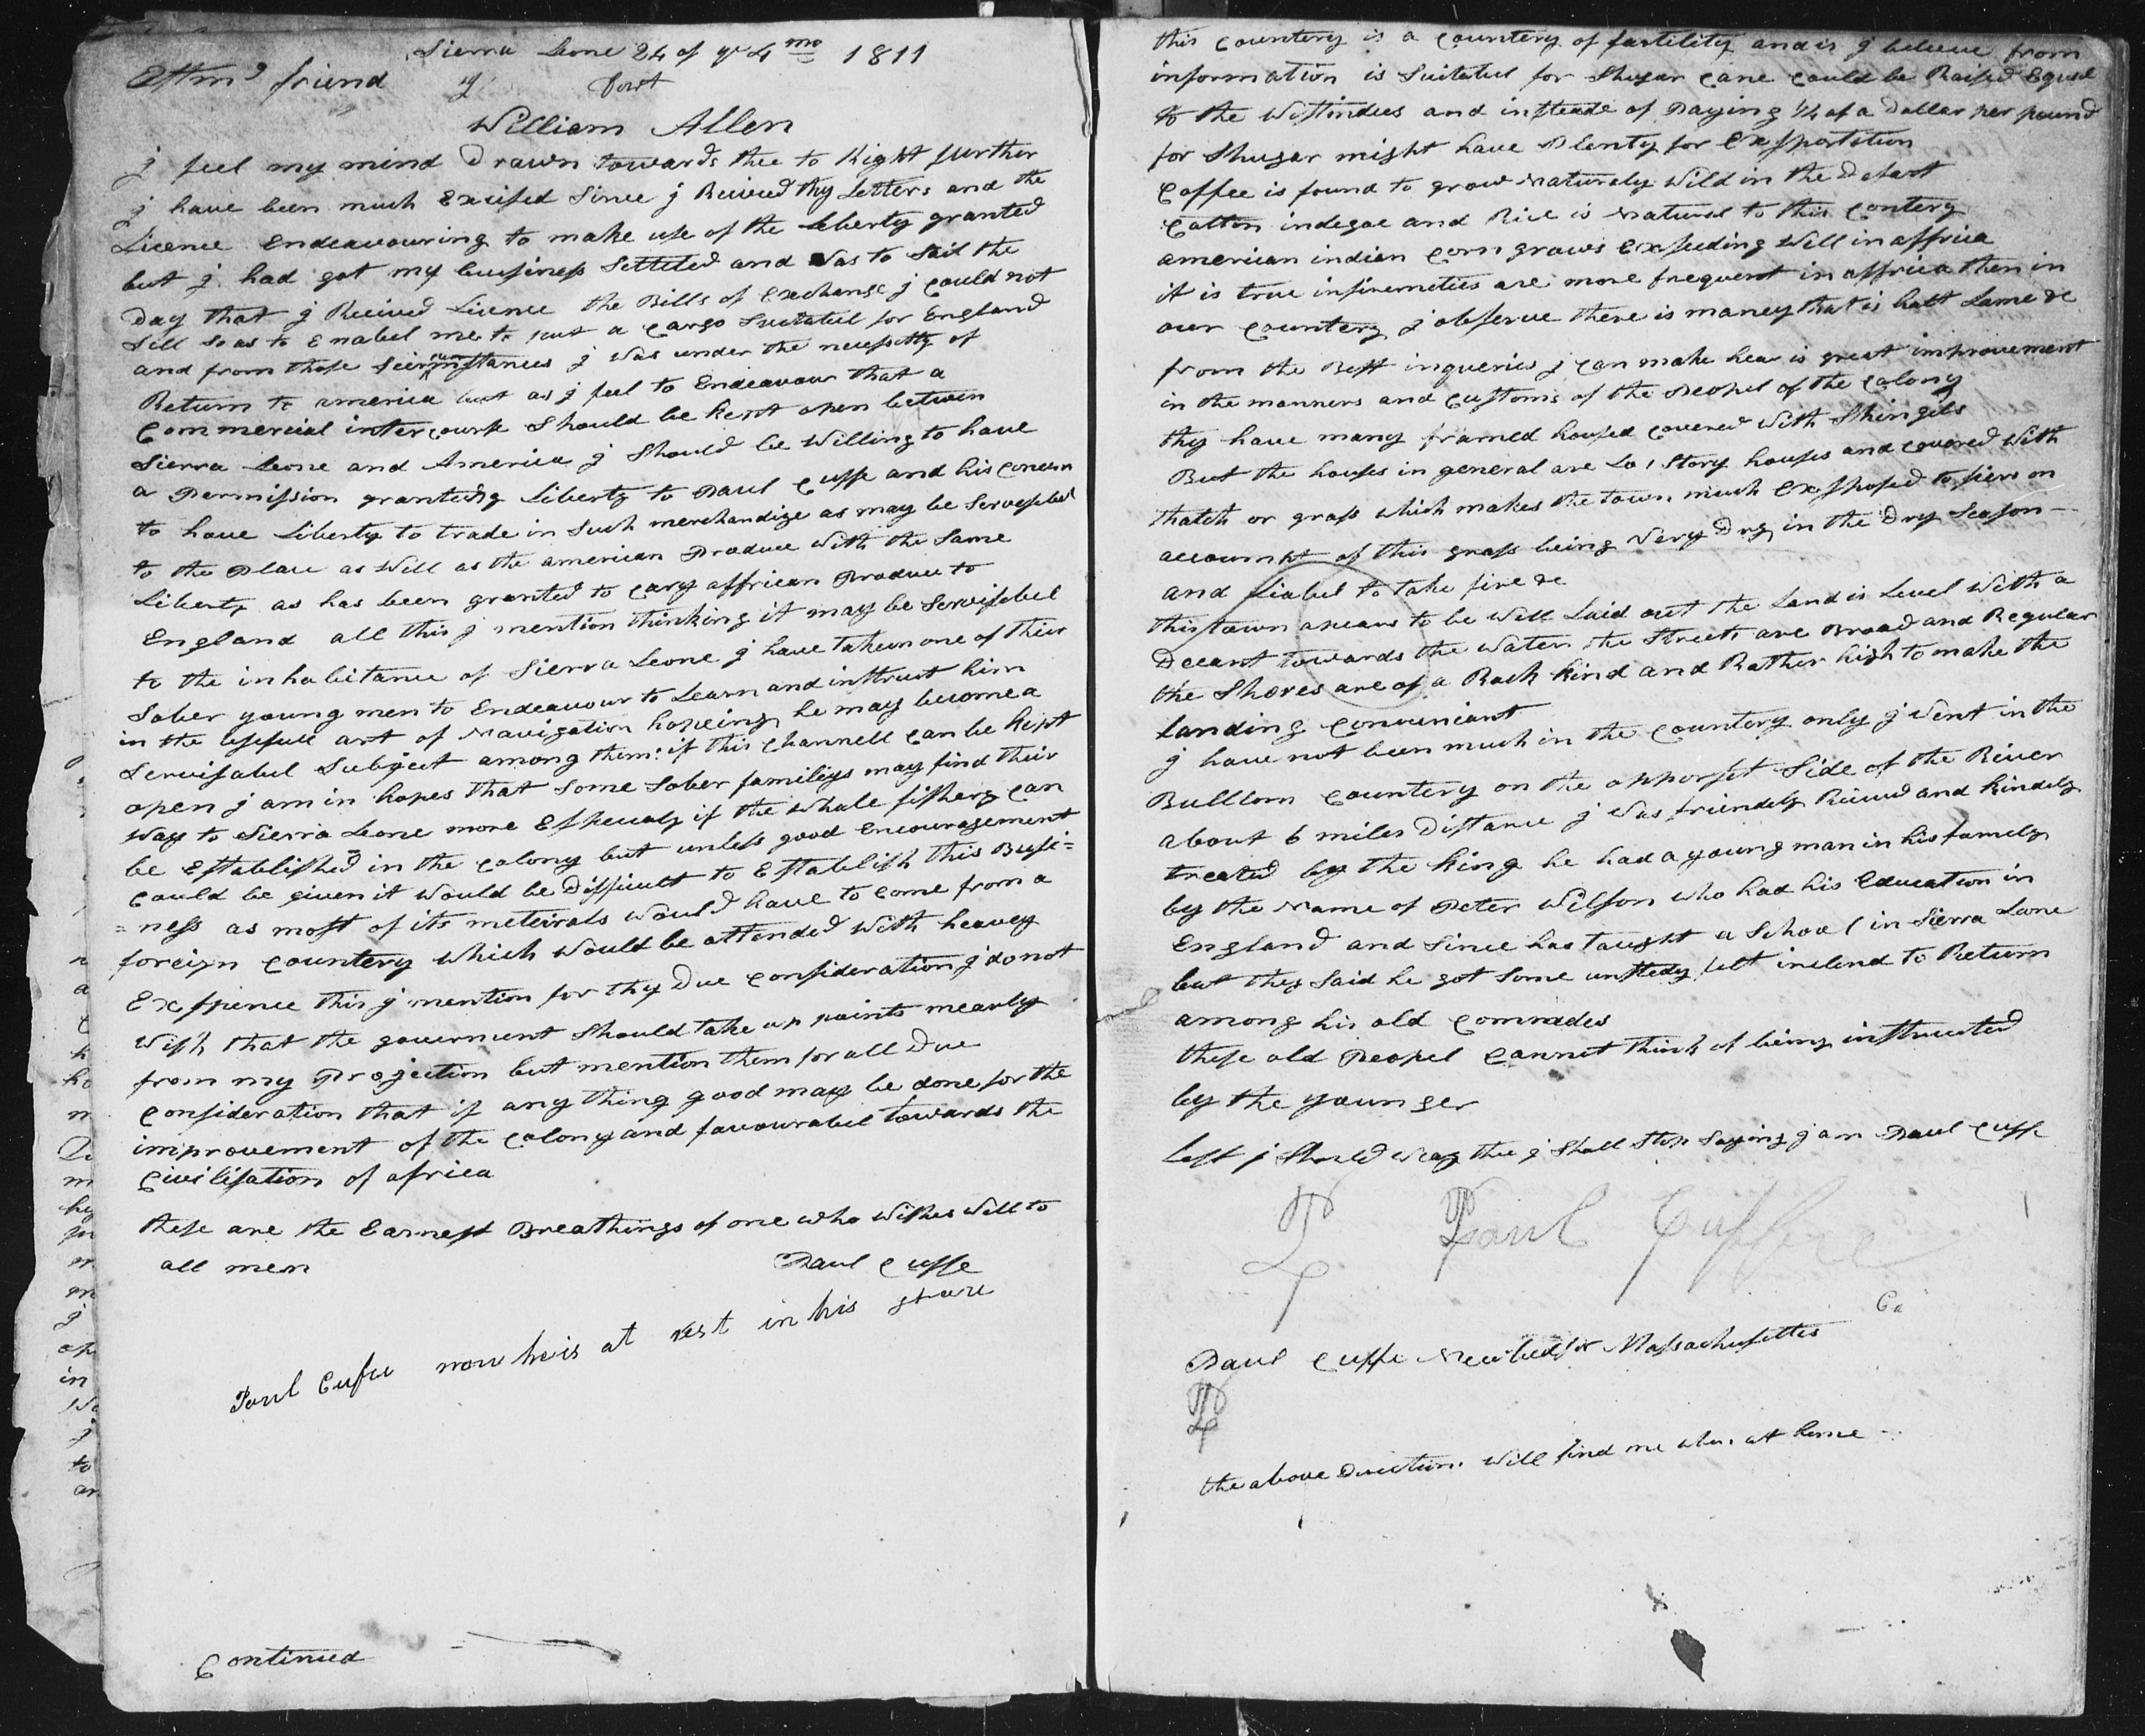 Sierra Leone 24 of ye 4 mo 1811
Esstmd friend
William Allen
j feel my mind Drawn towards thee to Right further
j have been much Exsised Since j Reivied thy Letters and the
Licence Endeavouring to make use of the Leberty granted
but j had got my business Setteled and Was to Sail the
Day that j Reeived Licence the Bills of Exchange j Could not
Sell So as to Enabel me to put a Cargo Suitabel for England
and from these Seircumstances j Was under the necessitty of
Return to america but as j feel to Endeavour that a
Commercial intercourse Should be kept open between
Sierra Leone and America j Should be Willing to have
a Permission granteding Liberty to Paul Cuffe and his Concern
to have Liberty to trade in Such merchandize as may be Servesebel
to the Place as Will as the american Produce With the Same
Liberty as has been granted to Cary affrican Produce to
England all this j mention thinking it may be Servisebel
to the inhabitance of Sierra Leone j have taken one of their
Sober young men to Endeavour to Learn and instruct him
in the usefull art of Navigation hopeing he may become a
Servisabel Subject among them: if this Channell Can be kept
open j am in hopes that Some Sober familiys may find their
Way to Sierra Leone more Espeucaly if the Whale fishery Can
be Established in the Colony but unless good Encouragement
Could be given it Would be Difficult to Establish this Busi=
=ness as most of its meteirals Would have to Come from a
foreign Countery Which Would be attended With heavey
Exspence this j mention for thy Due Consideration j do not
Wish that the government Should take up points mearly
from my Projection but mention them for all Due
Consideration that if any thing good may be done for the
improvement of the Colony and favourabel towards the
Civilisation of africa
these are the Earnest Breathings of one who Wishes Will to
all men
Paul Cuffe
Paul Cufee now he is at rest in his grave
Continued
this Countery is a Countery of fertility and is j believe from
information is Suitabel for Shugar Cane Could be Raised Equel
to the Wistindies and insteade of Paying 1/4 of a Dollar per pound
for Shugar might have Plenty for Exsportation
Coffee is found to grow Naturaly Wild in the Desart
Cotton indegoe and Rice is Natural to this Contery
american indian Corn grows Exseeding Will in affrica
it is true infiremeties are more frequent in affrica then in
our Countery j observe there is maney that is halt Lame &c
from the Best inqueries j Can make hear is great improvement
in the manners and Customs of the Peopel of the Colony
thy have many framed housed Covered With Shingels
But the houses in general are Lo 1 Story houses and Covered With
thatch or grass which makes the town much Exshposed to fiers on
accounkt of this grass being Very Dry in the Dry Season—
and Liabel to take fire &c
this town apears to be Will Laid out the Land is Level With a
Decant towards the Water the Streets are Broad and Regular
the Shores are of a Rock kind and Rather high to make the
Landing Conveniant
j have not been much in the Countery only j Went in the
Bulllom Countery on the opporsit Side of the River
about 6 miles Distance j Was friendely Reieved and kindely
treated by the king he had a young man in his famely
by the Name of Peter Wilson who had his Education in
England and Since has taught a School in Sierra Leone
but they Said he got Some unstedy but inclend to Return
among his old Comrades
these old Peopel Cannot think of being instructed
by the younger
Lest j Should weary thee j Shall Stop Saying j am Paul Cuffe
P Paul Cuffee
Ca
Paul Cuffe Massachusettes
P
the above Direction Will find me when at home